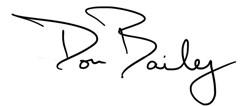 Don Bailey